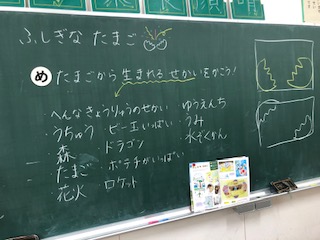 ふしぎな たまご
め たまごから 生まれる せかい をかこう！
へんなきょうりゅうのせかい ・ゆうえんち
・うちゅう ・ビー玉いっぱい ・うみ
森 ・ドラゴン ・水ぞくかん
たまご ・ポテチがいっぱい
花火 ロケット